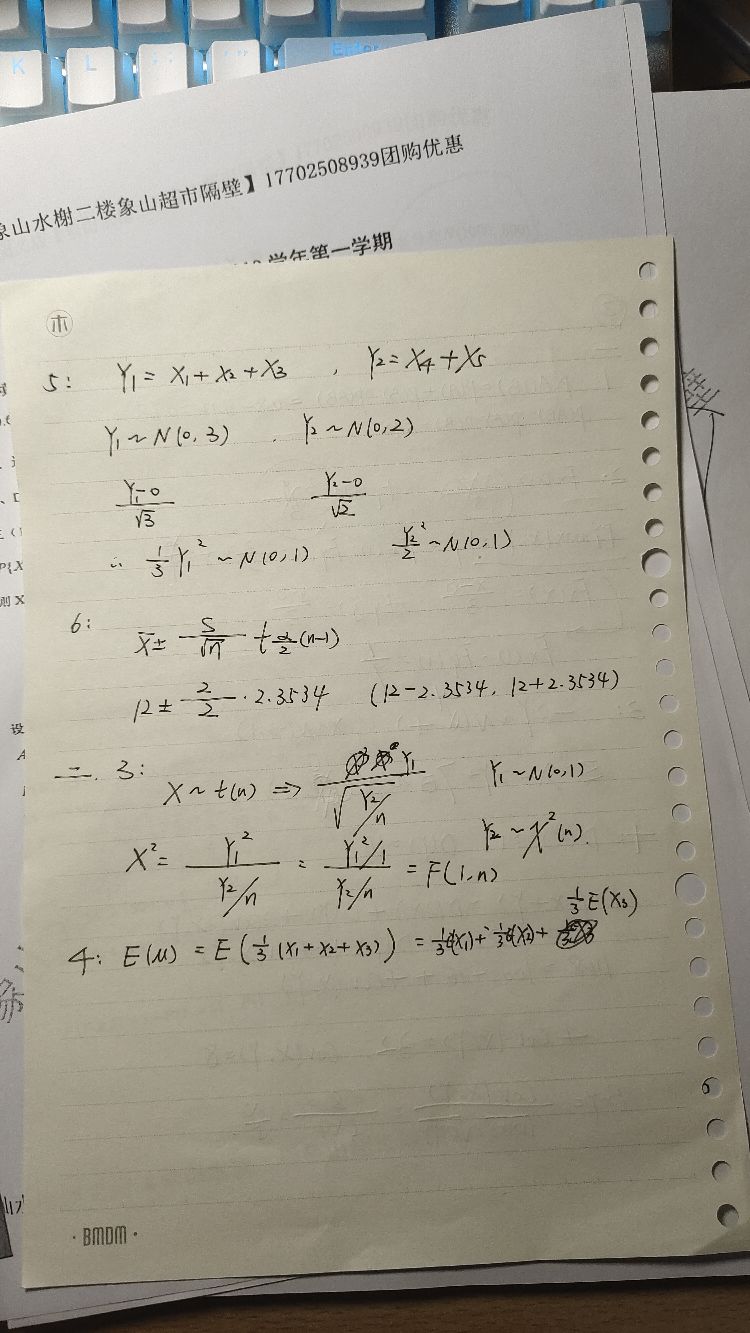 K L Enter
象山水榭二楼象山超市隔壁】17702508939团购优惠
学年第一学期
木
5: Y₁ = X₁ + X₂ + X₃ , Y₂ = X₄ + X₅
Y₁ ~ N(0, 3) . Y₂ ~ N(0, 2)
(Y₁-0)/√3 (Y₂-0)/√2
∴ 1/3 Y₁² ~ N(0, 1) Y₂²/2 ~ N(0, 1)
6: X̄ ± S/√n t_{α/2}(n-1)
12 ± 2/2 · 2.3534 (12-2.3534, 12+2.3534)
二. 3: X ~ t(n) => Y₁/√(Y₂/n) Y₁ ~ N(0, 1)
X² = Y₁²/(Y₂/n) = (Y₁²/1)/(Y₂/n) = F(1, n) Y₂ ~ χ²(n).
1/3 E(X₃)
4: E(μ) = E(1/3 (X₁+X₂+X₃)) = 1/3 E(X₁) + 1/3 E(X₂) +
· BMDM ·